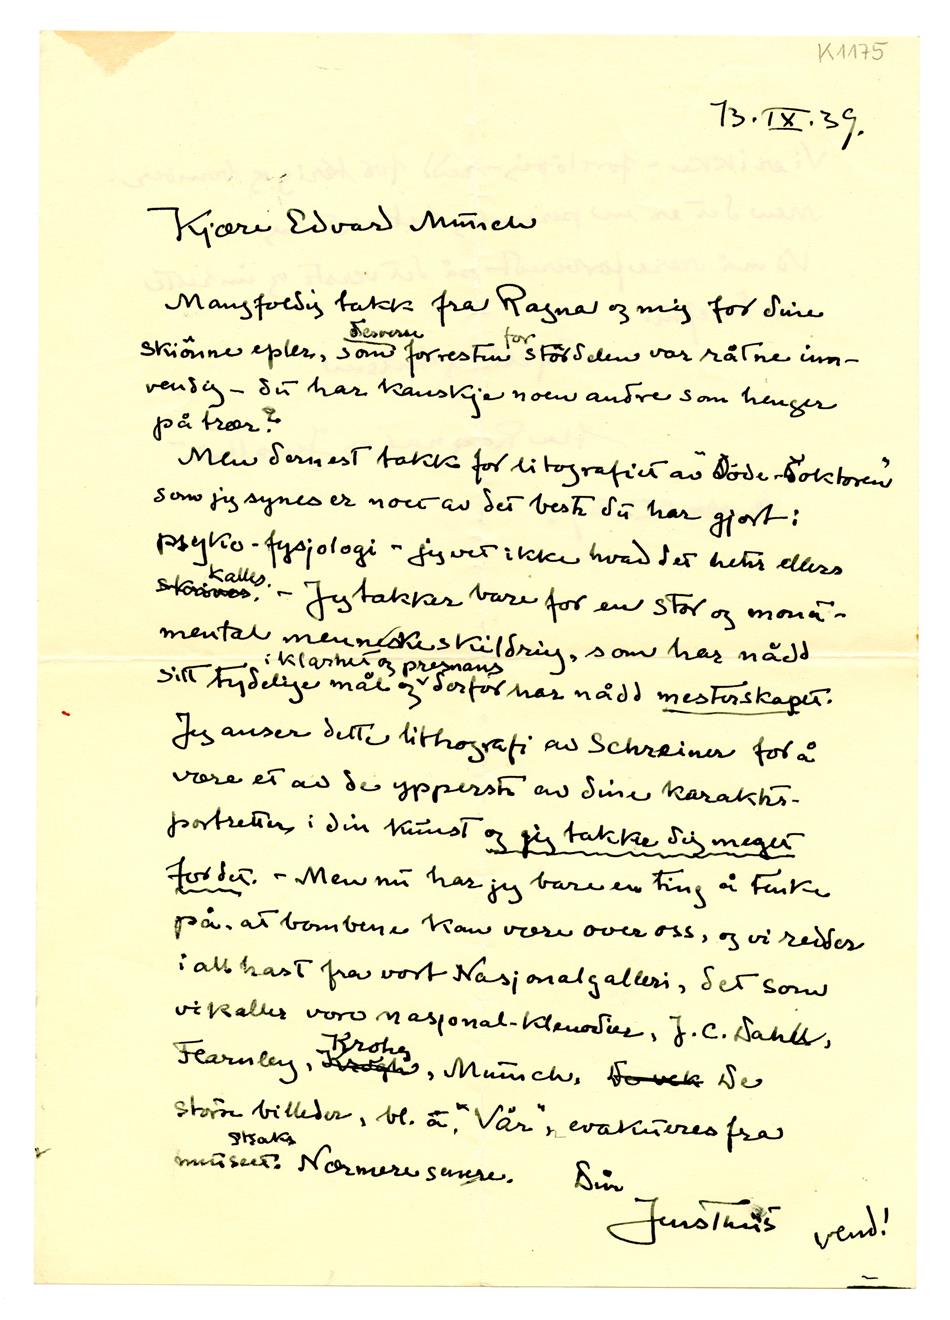 K1175
13.IX.39.
Kjære Edvard Munch
Mangfoldig takk fra Ragna og mig for dine
skjönne epler, som desverre forresten for störsdelen var råtne inn-
vendig – du har kanskje noen andre som henger
på trær?
Men dernest takk for litografiet av "Döde-Doktoren"
som jeg synes er noe av det beste du har gjort i
psyko-fysjologi – jeg vet ikke hvad det heter ellers
skrives. kalles. – Jeg takker bare for en stor og monu-
mental menneskeskildring, som har nådd
sitt tydelige mål i klarhet og pregnans og derfor har nådd mesterskapet.
Jeg anser dette lithografi av Schreiner for å
være et av de ypperste av dine karakter-
portretter i din kunst og jeg takke dig meget
for det. – Men nu har jeg bare en ting å tenke
på, at bombene kan være over oss, og vi redder
i all hast fra vort Nasjonalgalleri, det som
vi kaller vore nasjonal-klenodier, J.C. Dahl,
Fearnley, Krogh, Krohg, Munch. De
större billeder, bl.a. "Vår", evakueres fra
museet straks. Nærmere senere. Din
Jens Thiis
vend!